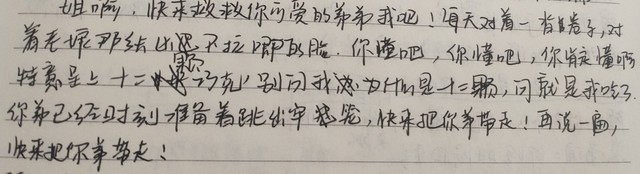 姐啊,快来救救你可爱的弟弟我吧!每天对着一背卷子,对
着老班那给出不拉即的脸.你懂吧,你懂吧,你肯定懂啊
特意呈上十二颗巧克力别问我为什么是十二颗,问就是我吃了.
你弟已经时刻准备着跳出牢笼,快来把你弟带走!再说一遍,
快来把你弟带走!